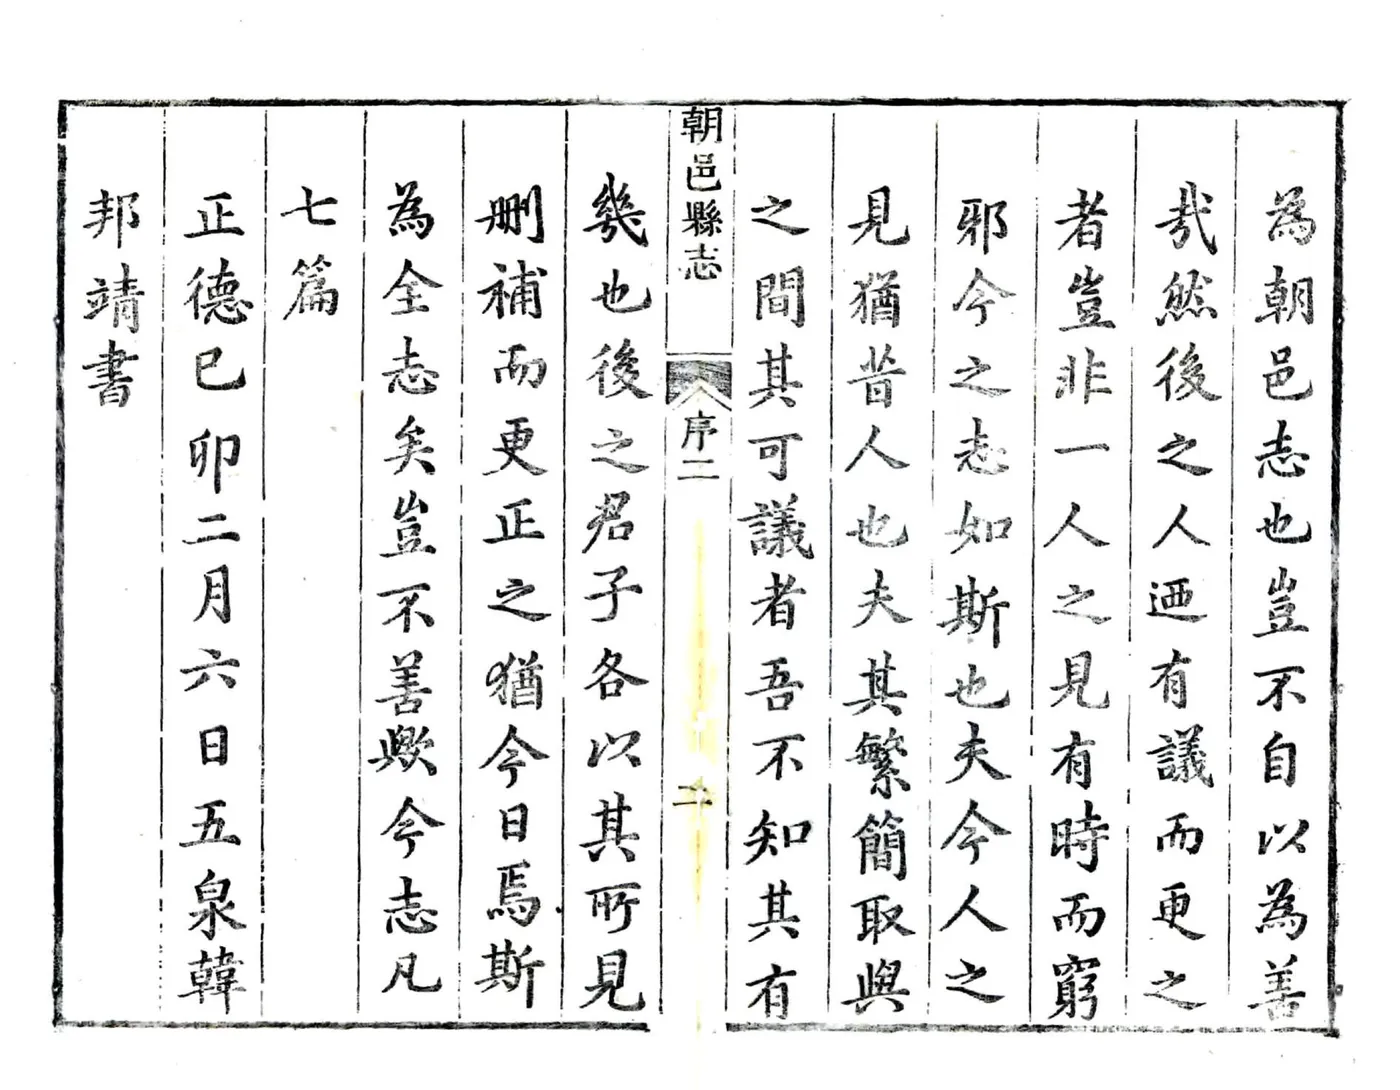 為朝邑志也豈不自以為善
哉然後之人迺有議而更之
者豈非一人之見有時而窮
邪今之志如斯也夫今人之
見猶昔人也夫其繁簡取與
之間其可議者吾不知其有
朝邑縣志
序二
二
幾也後之君子各以其所見
刪補而更正之猶今日焉斯
為全志矣豈不善歟今志凡
七篇
正德已卯二月六日五泉韓
邦靖書